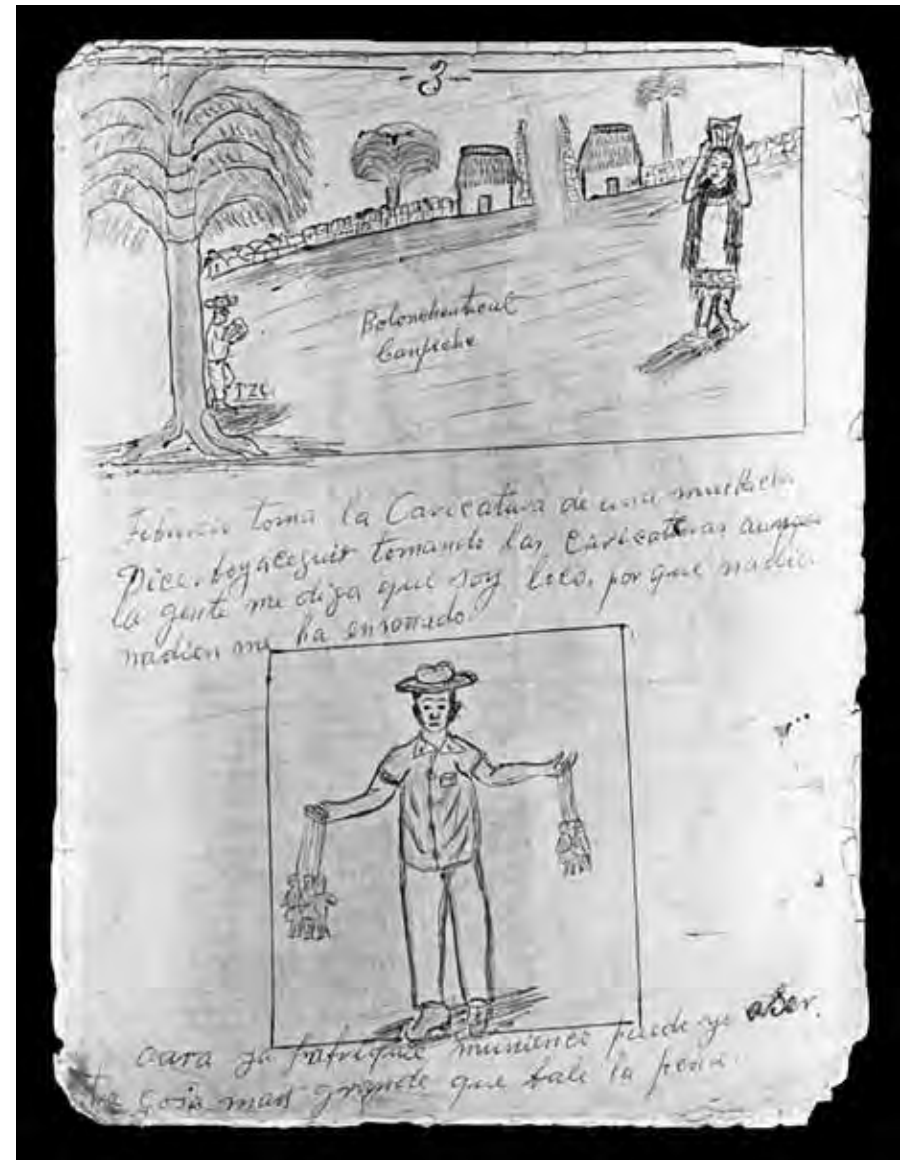 -3-
Bolonchenticul
Canpiche
TZC.
Feburcio toma la Caricatura de una muchacha
Dice. boy a ceguir tomando las caricaturas aunque
la gente me diga que soy loco, por que nadie
nadien me ha ensonado.
cara ya fabriquee muniense puede yo aser.
cosa mas grande que bale la pena.